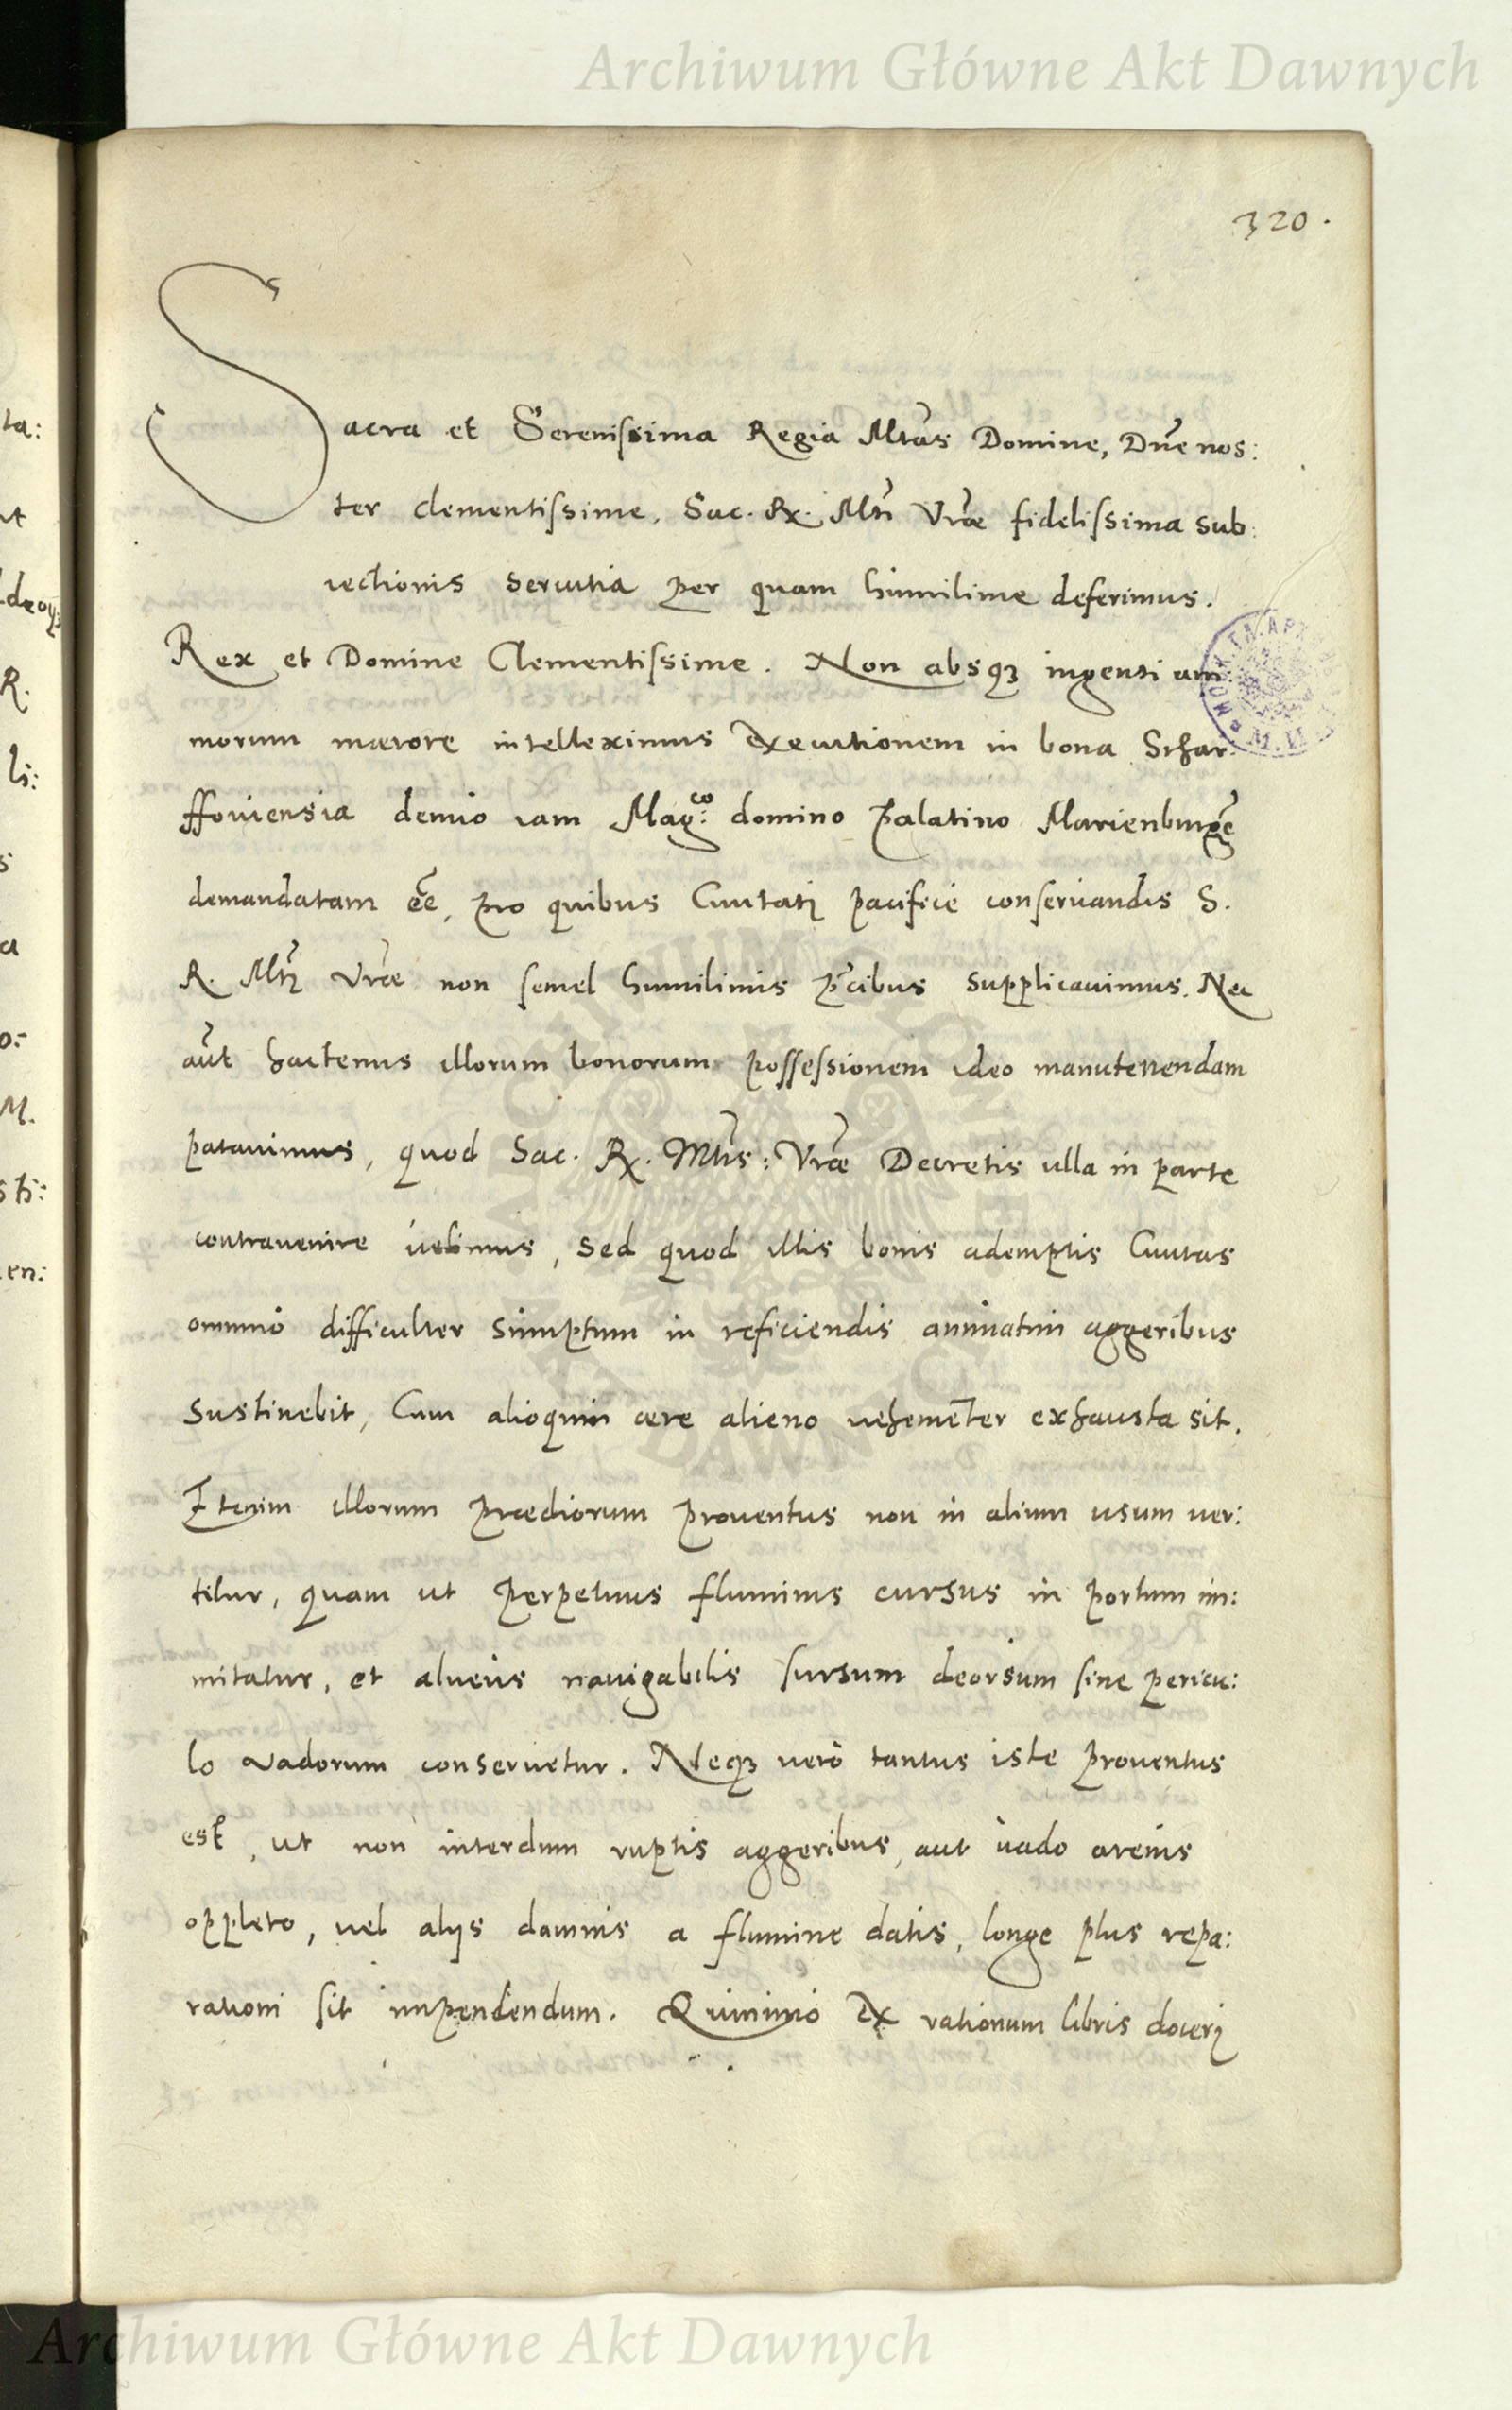 Archiwum Główne Akt Dawnych
320.
Sacra et Serenissima Regia Mtas Domine, Dne nos:
ter clementissime, Sac. Rx. Mti Vrae fidelissima sub:
iectionis seruitia per quam humilime deferimus.
Rex et Domine Clementissime. Non absq3 ingenti ani:
morum maerore intelleximus Executionem in bona Schar:
ffouiensia denuo iam Mag:co domino Palatino Marienburgen
demandatam ee, pro quibus Ciuitati pacifice conseruandis S.
R. Mti Vrae non semel humilimis pcibus supplicauimus. Nec
aut hactenus illorum bonorum possessionem ideo manutenendam
putauimus, quod Sac. Rx. Mtis: Vrae Decretis ulla in parte
contrauenire uelimus, sed quod illis bonis ademptis Ciuitas
omnino difficulter sumptum in reficiendis annuatim aggeribus
sustinebit, Cum alioquin aere alieno uehementer exhausta sit.
Etenim illorum praediorum prouentus non in alium usum uer:
titur, quam ut perpetuus fluminis cursus in portum im:
mitatur, et alueus nauigabilis sursum deorsum sine pericu:
lo uadorum conseruetur. Neq3 uero tantus iste prouentus
est, ut non interdum ruptis aggeribus, aut uado arenis
oppleto, uel alijs damnis a flumine datis, longe plus repa:
rationi sit impendendum. Quinimo Ex rationum libris doceri
Archiwum Główne Akt Dawnych